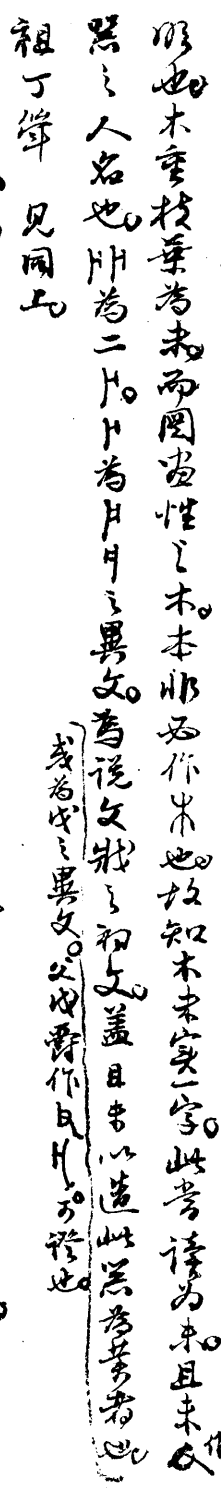 明也。木重枝葉為未。而圖畫性之木。本非必作朱也。故知木未實一字。此當讀為未。且未父作
器之人名也。為二。為之異文。為說文戕之初文。蓋且未以造此器為業者也。
或為戊之異文。父戊爵作可證也。
祖丁觶 見同上。